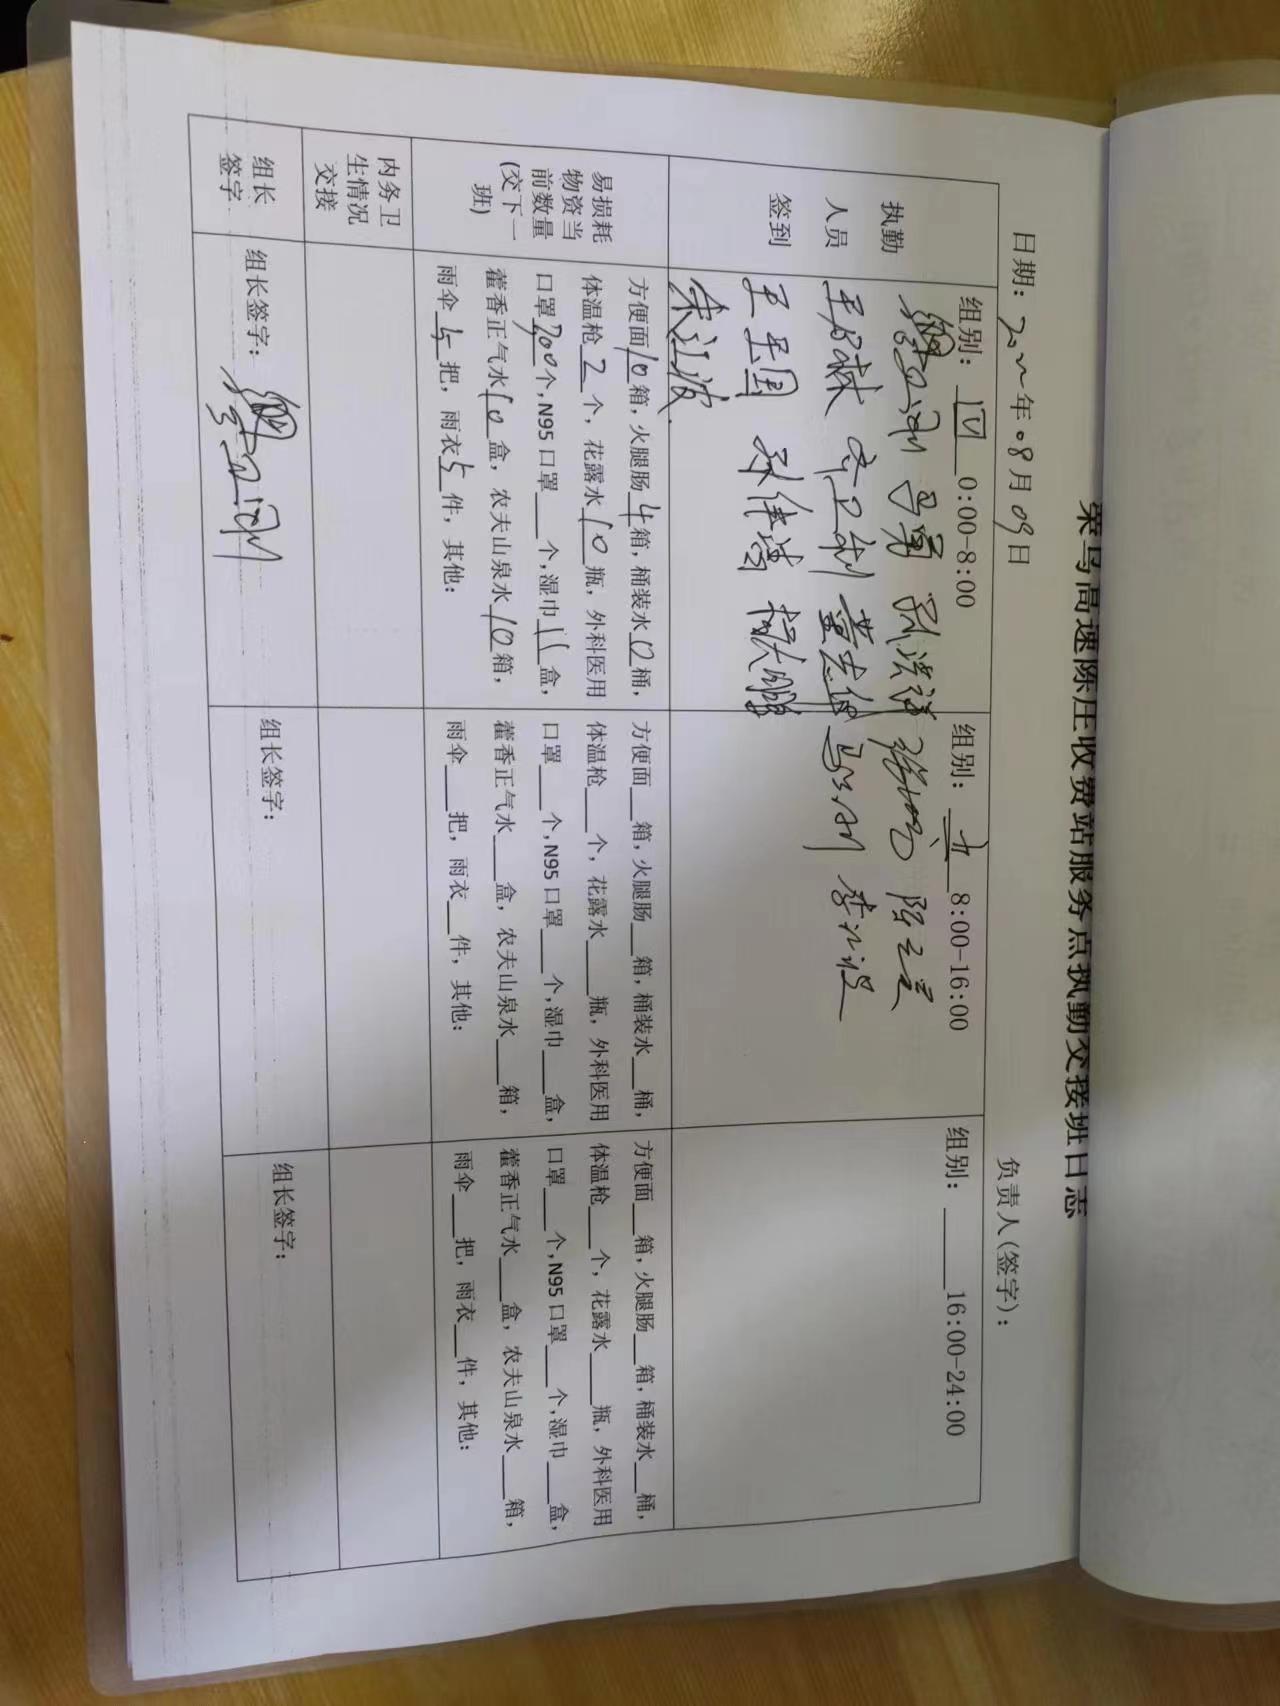 高速陈庄收费站服务点执勤交接班日志
日期：2021年08月09日 负责人(签字)：
组别：四 0:00-8:00 组别：五 8:00-16:00 组别：____16:00-24:00
执勤
人员
签到
李卫利 董志
王卫国
宋江波
易损耗
物资当
前数量
(交下一
班)
方便面10箱，火腿肠4箱，桶装水10桶，
体温枪2个，花露水10瓶，外科医用
口罩700个，N95口罩___个，湿巾11盒，
藿香正气水10盒，农夫山泉水10箱，
雨伞5把，雨衣5件，其他：
方便面___箱，火腿肠___箱，桶装水___桶，
体温枪___个，花露水___瓶，外科医用
口罩___个，N95口罩___个，湿巾___盒，
藿香正气水___盒，农夫山泉水___箱，
雨伞___把，雨衣___件，其他：
方便面___箱，火腿肠___箱，桶装水___桶，
体温枪___个，花露水___瓶，外科医用
口罩___个，N95口罩___个，湿巾___盒，
藿香正气水___盒，农夫山泉水___箱，
雨伞___把，雨衣___件，其他：
内务卫
生情况
交接
组长
签字
组长签字：
组长签字：
组长签字：